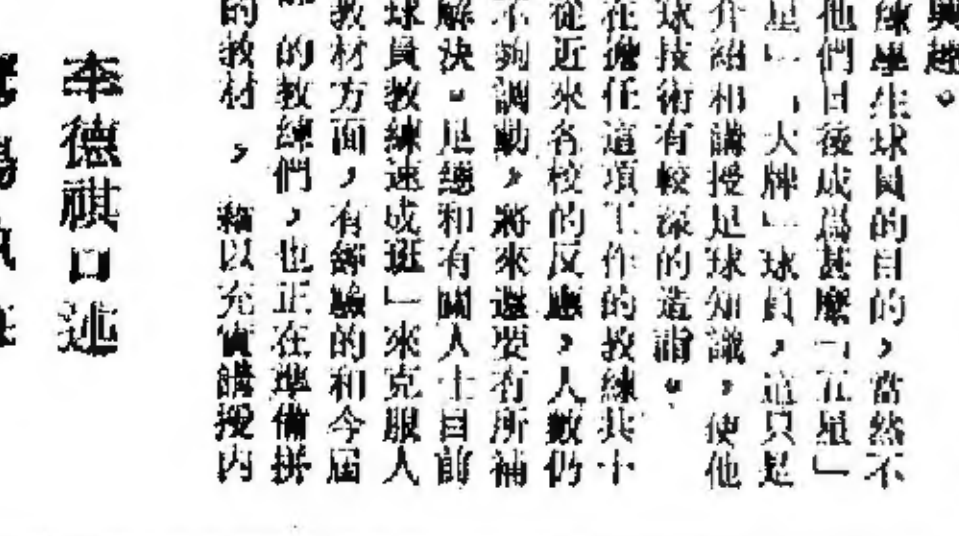 興趣。
練學生球員的目的，當然不
他們日後成爲甚麼「五星」
星」「大牌」球員，這只是
介紹和講授足球知識，使他
球技術有較深的造詣。
在擔任這項工作的教練共十
從近來各校的反應，人數仍
不夠調動，將來還要有所補
解決。足總和有關人士目前
球員教練速成班」來克服人
教材方面，有經驗的和今屆
的教練們，也正在準備拼
的教材，藉以充實講授內
李德祺口述